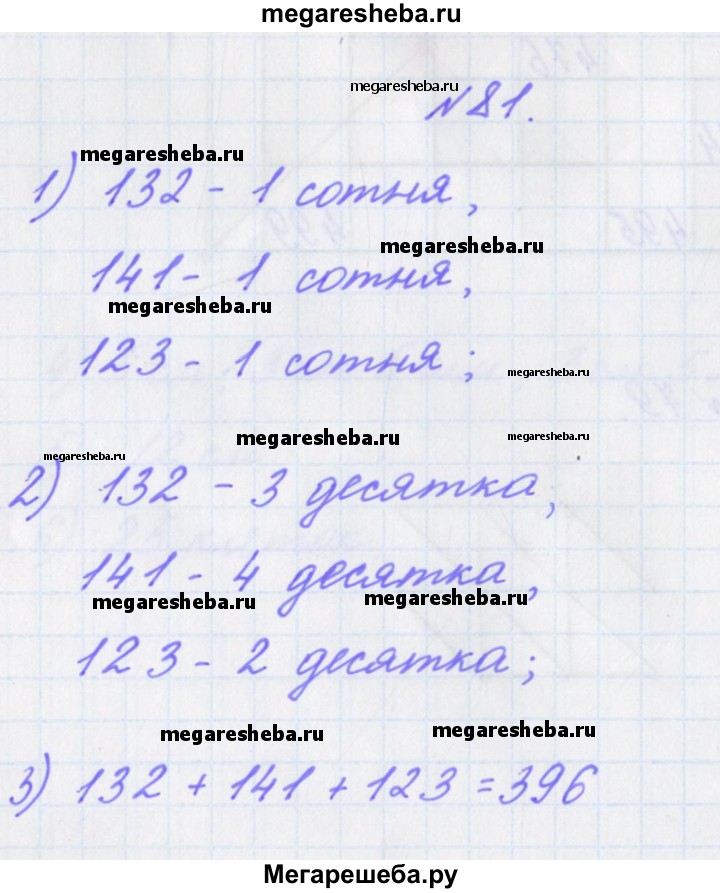 megaresheba.ru
megaresheba.ru
№81.
megaresheba.ru
1) 132 - 1 сотня,
megaresheba.ru
141 - 1 сотня,
megaresheba.ru
123 - 1 сотня;
megaresheba.ru
megaresheba.ru
megaresheba.ru
megaresheba.ru
2) 132 - 3 десятка,
141 - 4 десятка,
megaresheba.ru
megaresheba.ru
123 - 2 десятка;
megaresheba.ru
megaresheba.ru
3) 132 + 141 + 123 = 396
Мегарешеба.ру